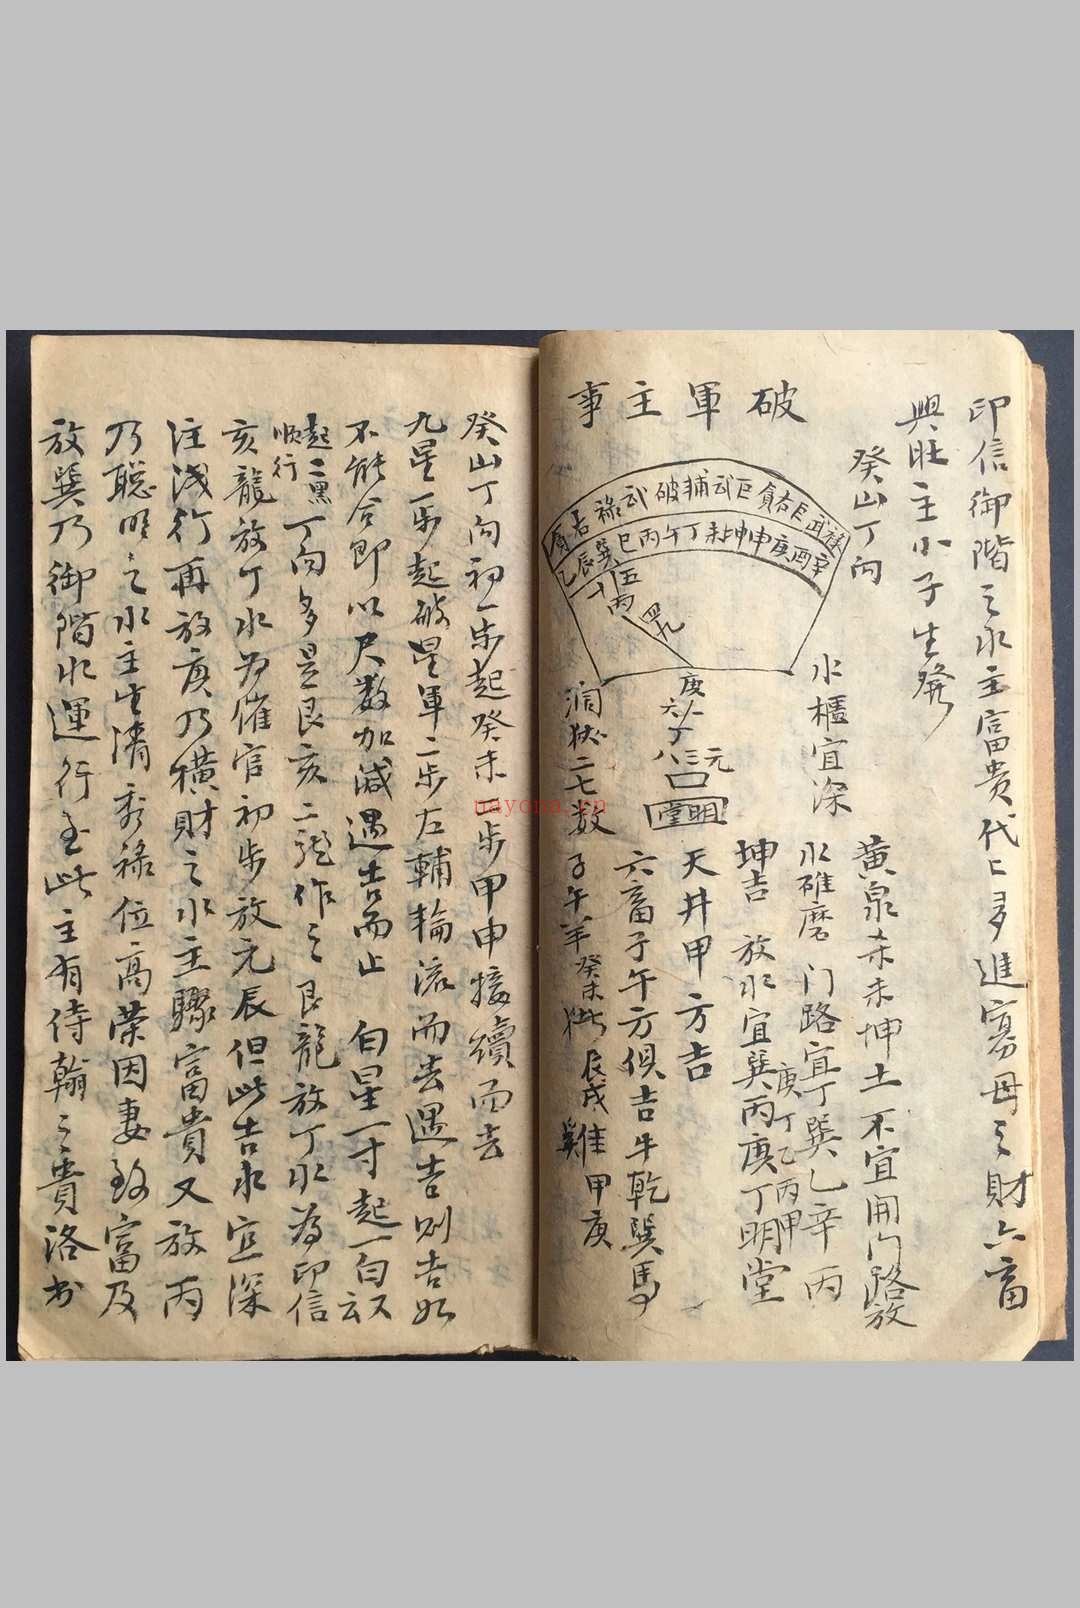 印信御階之水主富贵代匕多進寡母之財六畜
興旺主小子生発
癸山丁向
破軍主事
禄武巨右貪巨武輔破武禄
辛酉庚申坤未丁午丙巳巽辰乙
五
十
丙
四九
庚
六一
丁
八三元
明堂
水櫃宜深
黄泉未坤土不宜開门路放
水碓磨 门路宜丁巽乙辛丙
庚丁乙丙甲
坤吉 放水宜巽丙庚丁明堂
天井甲方吉
六畜子午方俱吉牛乾巽馬
二七数 子午羊癸未 辰戌雞甲庚
癸山丁向初一步起癸未二步甲申接續而去
九星一步起破星軍二步左輔輪流而去遇吉则吉如
不能合即以尺数加减遇吉而止 白星一寸起一白
起二黑
順行
丁向多是艮亥二龍作之艮龍放丁水為印信
亥龍放丁水为催官初步放元辰但此吉水宜深
注浅行再放庚乃横財之水主驟富貴又放丙
乃聪明之水主生清秀禄位高荣因妻致富及
放巽乃御階水運行至此主有侍翰之貴洛书
nayona.cn